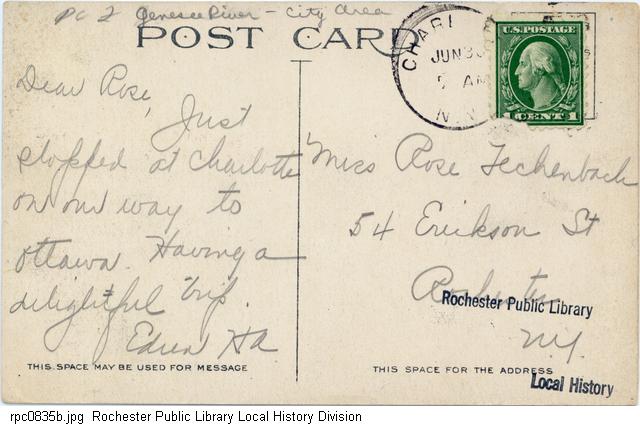 PC 2 Genesee River - City Area
POST CARD
CHARL
JUN 30
AM
N.Y.
U.S. POSTAGE
1 CENT 1
Dear Rose,
Just
stopped at Charlotte
on our way to
Ottawa. Having a
delightful trip.
Edna
Miss Rose Fechenbach
54 Erikson St
Rochester
N.Y.
Rochester Public Library
THIS SPACE MAY BE USED FOR MESSAGE
THIS SPACE FOR THE ADDRESS
Local History
rpc0835b.jpg Rochester Public Library Local History Division